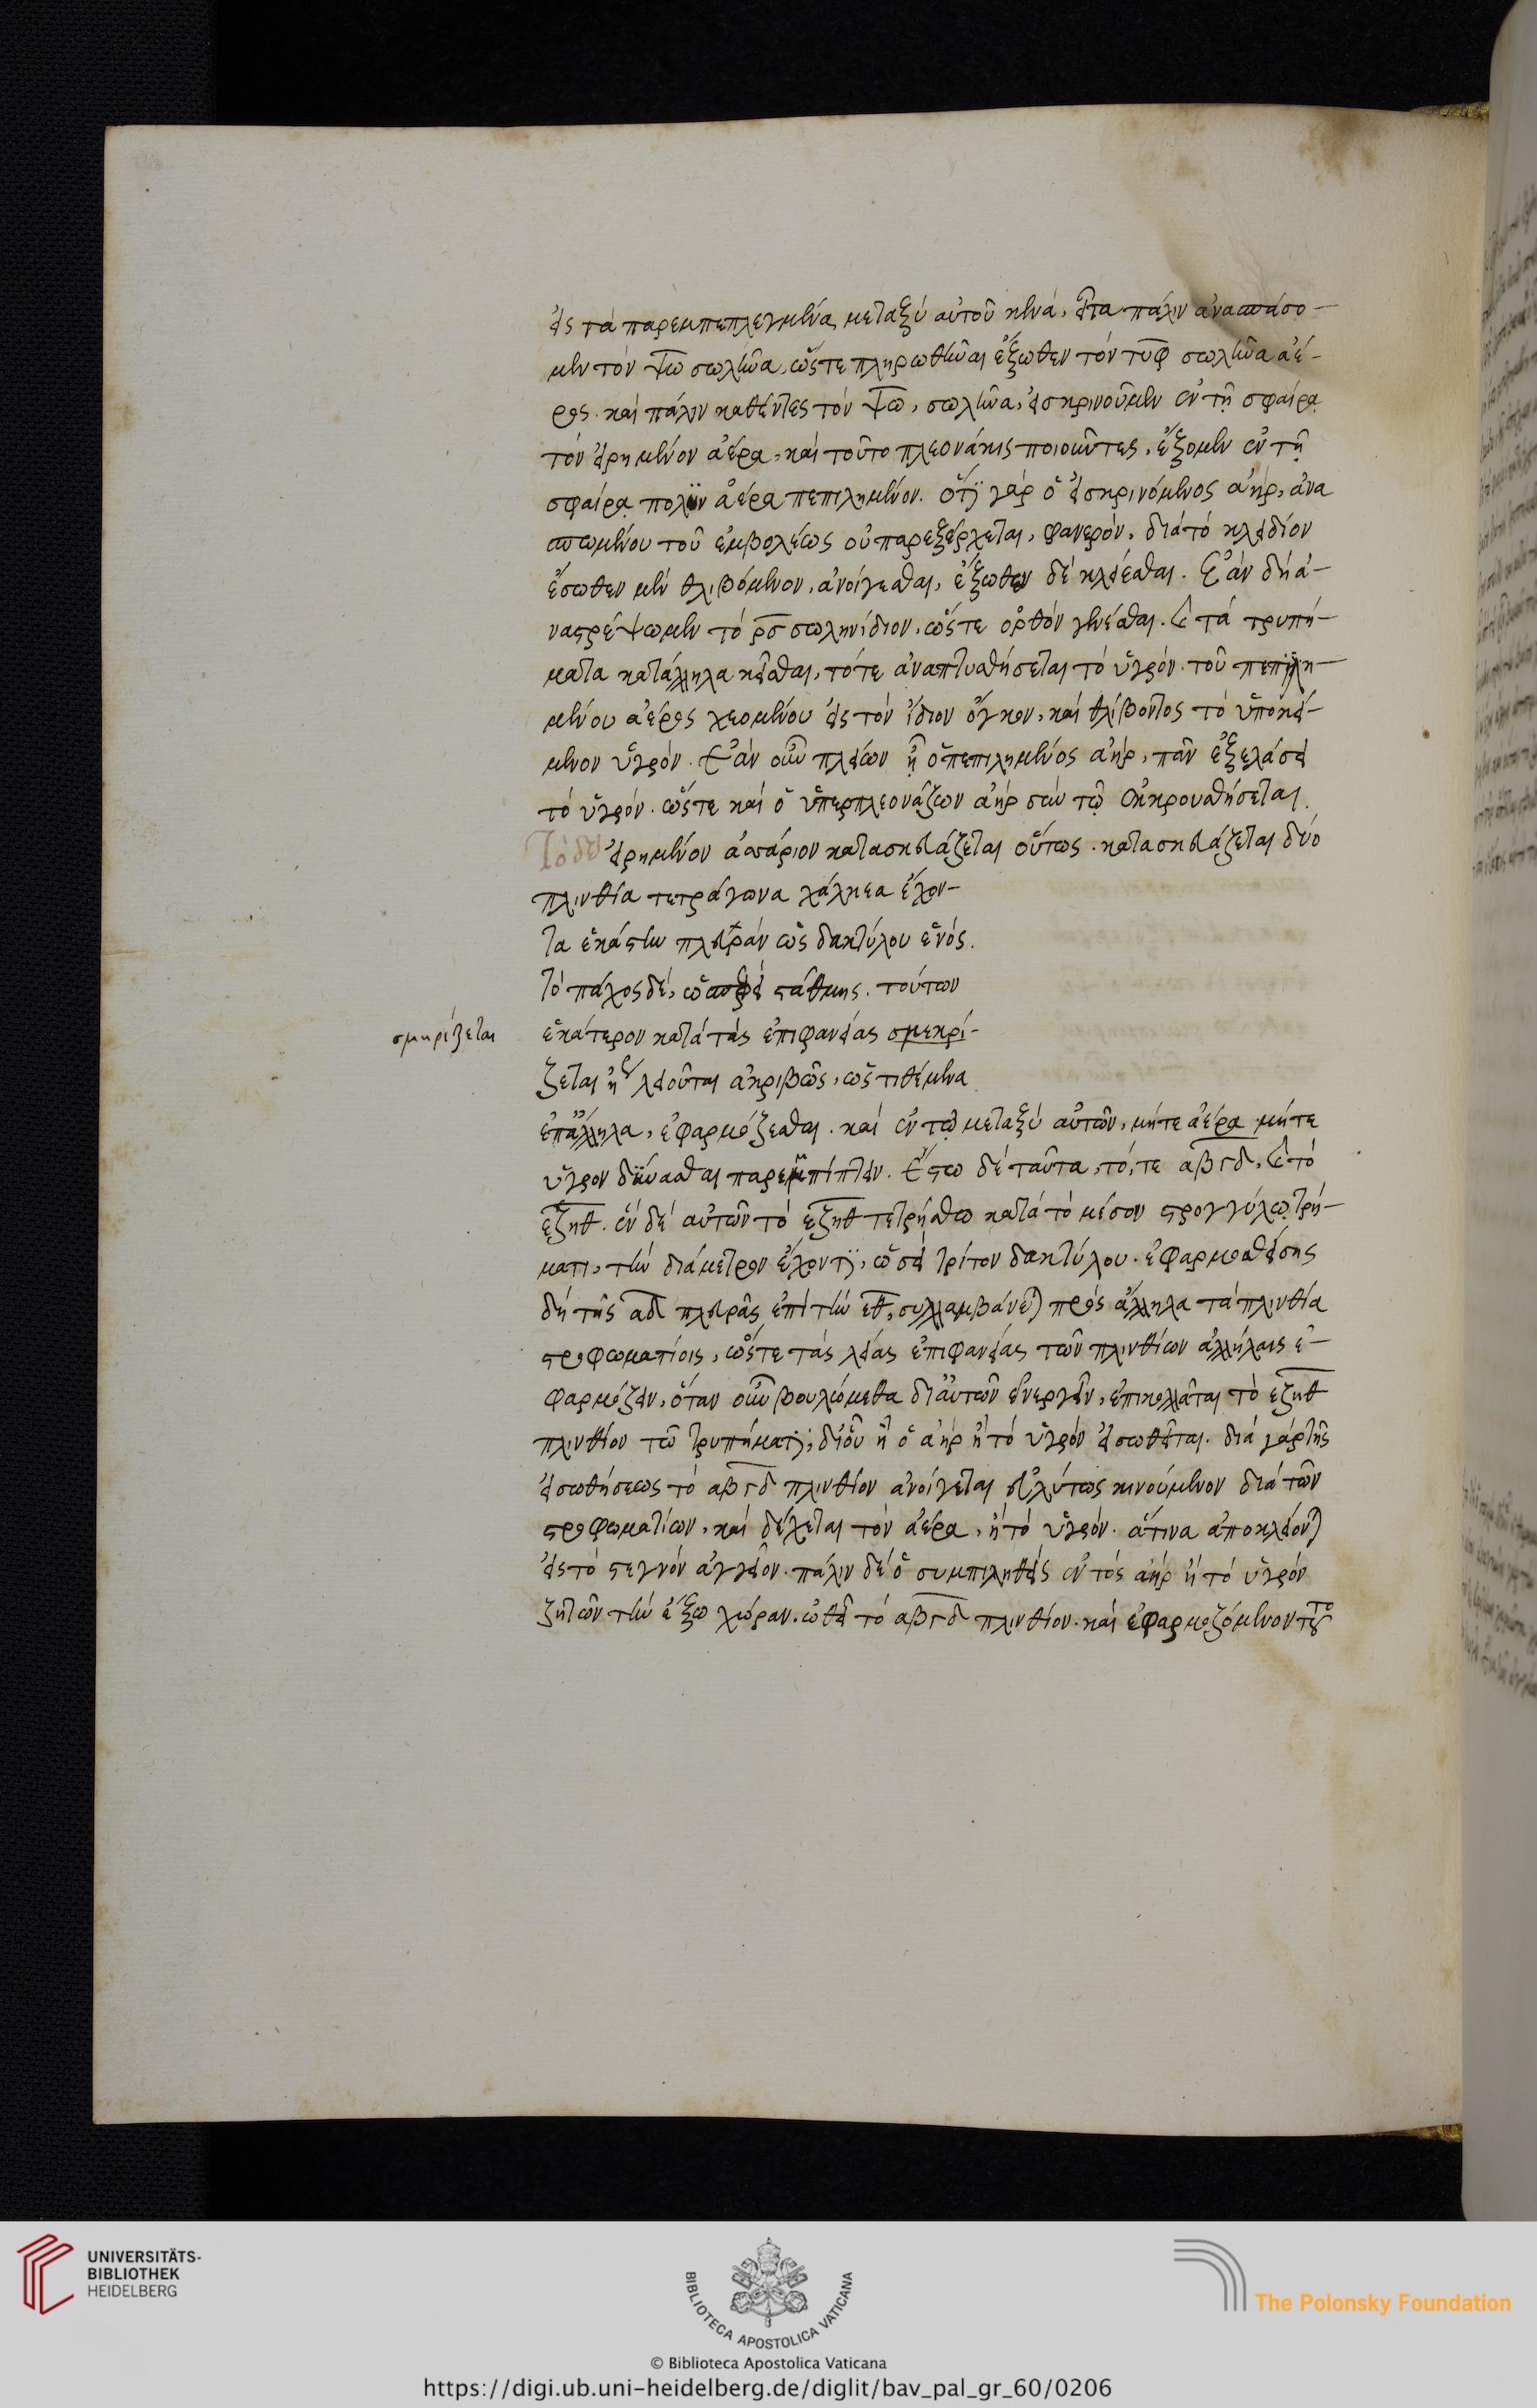 εἰς τὰ παρεμπεπλεγμένα μεταξὺ αὐτοῦ κενά, εἶτα πάλιν ἀνασπάσο-
μεν τὸν ψω σωλῆνα, ὥστε πληρωθῆναι ἔξωθεν τὸν τυφ σωλῆνα ἀέ-
ρος. καὶ πάλιν καθέντες τὸν ψω, σωλῆνα, εἰσκρινοῦμεν ἐν τῇ σφαίρᾳ
τὸν εἰρημένον ἀέρα, καὶ τοῦτο πλεονάκις ποιοῦντες, ἕξομεν ἐν τῇ
σφαίρᾳ πολὺν ἀέρα πεπιλημένον. ὅτι γὰρ ὁ εἰσκρινόμενος ἀὴρ, ἀνα
σπωμένου τοῦ ἐμβολέως οὐ παρεξέρχεται, φανερόν, διὰ τὸ κλειδίον
ἔσωθεν μὲν θλιβόμενον, ἀνοίγεσθαι, ἔξωθεν δὲ κλείεσθαι. Ἐὰν δὴ ἀ-
ναστρέψωμεν τὸ ρσ σωληνίδιον, ὥστε ὀρθὸν γενέσθαι. καὶ τὰ τρυπή-
ματα κατάλληλα κεῖσθαι, τότε ἀναπτυσθήσεται τὸ ὑγρόν. τοῦ πεπιλη-
μένου ἀέρος χεομένου εἰς τὸν ἴδιον ὄγκον, καὶ θλίβοντος τὸ ὑποκεί-
μενον ὑγρόν. Ἐὰν οὖν πλείων ᾖ ὁ πεπιλημένος ἀήρ, πᾶν ἐξελάσει
τὸ ὑγρόν. ὥστε καὶ ὁ ὑπερπλεονάζων ἀὴρ σὺν τῷ ἐκκρουσθήσεται.
Τὸ δὲ εἰρημένον ἀσπάριον κατασκευάζεται οὕτως. κατασκευάζεται δύο
πλινθία τετράγωνα χάλκεα ἔχον-
τα ἑκάστην πλευρὰν ὡς δακτύλου ἑνός.
τὸ πάχος δὲ, ὡσπερεὶ στάθμης. τούτων
ἑκάτερον κατὰ τὰς ἐπιφανείας σμεκρί-
ζεται ἢ λειοῦται ἀκριβῶς, ὡς τιθέμενα
ἐπάλληλα, ἐφαρμόζεσθαι. καὶ ἐν τῷ μεταξὺ αὐτῶν, μήτε ἀέρα μήτε
ὑγρὸν δύνασθαι παρεμπίπτειν. Ἔστω δὲ ταῦτα, τό, τε αβγδ, καὶ τὸ
εζηθ. ἓν δὲ αὐτῶν τὸ εζηθ τετρήσθω κατὰ τὸ μέσον στρογγύλῳ τρή-
ματι, τὴν διάμετρον ἔχοντι, ὡσεὶ τρίτον δακτύλου. ἐφαρμοσθείσης
δὴ τῆς αδ πλευρᾶς ἐπὶ τὴν εθ, συλλαμβάνεται πρὸς ἄλληλα τὰ πλινθία
στροφωματίοις, ὥστε τὰς λείας ἐπιφανείας τῶν πλινθίων ἀλλήλαις ἐ-
φαρμόζειν, ὅταν οὖν βουλώμεθα δι' αὐτῶν ἐνεργεῖν, ἐπικολλᾶται τὸ εζηθ
πλινθίον τῷ τρυπήματι, δι' οὗ ἢ ὁ ἀὴρ ἢ τὸ ὑγρὸν εἰσωθεῖται. διὰ γὰρ τῆς
εἰσωθήσεως τὸ αβγδ πλινθίον ἀνοίγεται εὐλύτως κινούμενον διὰ τῶν
στροφωματίων, καὶ δέχεται τὸν ἀέρα, ἢ τὸ ὑγρόν. ἅτινα ἀποκλείονται
εἰς τὸ στεγνὸν ἀγγεῖον. πάλιν δὲ ὁ συμπιληθεὶς ἐντὸς ἀὴρ ἢ τὸ ὑγρὸν
ζητῶν τὴν ἔξω χώραν. ὠθεῖ τὸ αβγδ πλινθίον. καὶ ἐφαρμοζόμενον τοῦτο
σμηρίζεται
UNIVERSITÄTS-
BIBLIOTHEK
HEIDELBERG
BIBLIOTECA APOSTOLICA VATICANA
The Polonsky Foundation
© Biblioteca Apostolica Vaticana
https://digi.ub.uni-heidelberg.de/diglit/bav_pal_gr_60/0206